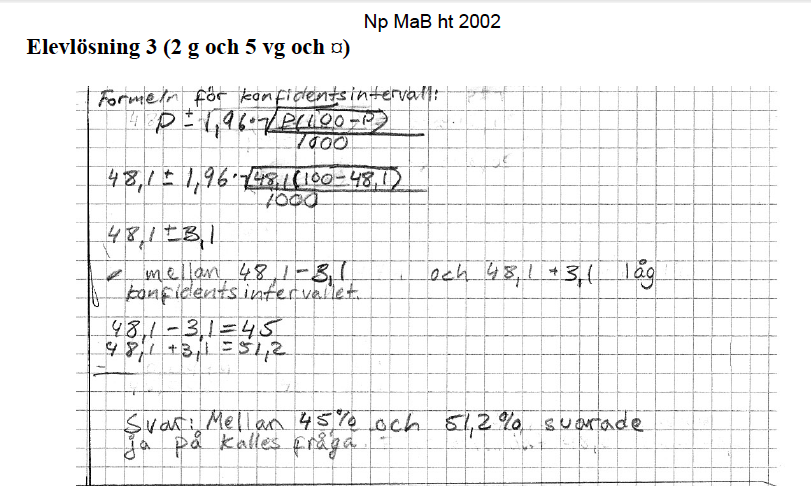 Np MaB ht 2002
Elevlösning 3 (2 g och 5 vg och ¤)
Formeln för konfidentsintervall:
p ± 1,96·√P(100-P)
1000
48,1 ± 1,96·√48,1(100-48,1)
1000
48,1 ± 3,1
mellan 48,1-3,1 och 48,1+3,1 låg
konfidentsintervallet.
48,1-3,1=45
48,1+3,1=51,2
Svar: Mellan 45% och 51,2% svarade
ja på Kalles fråga.